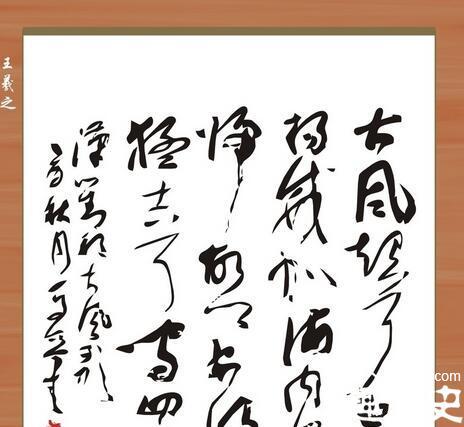 大风起兮
扬威加海内
归故乡安得
猛士兮守四
汉刘邦大风歌
秋月
王羲之
史
.com